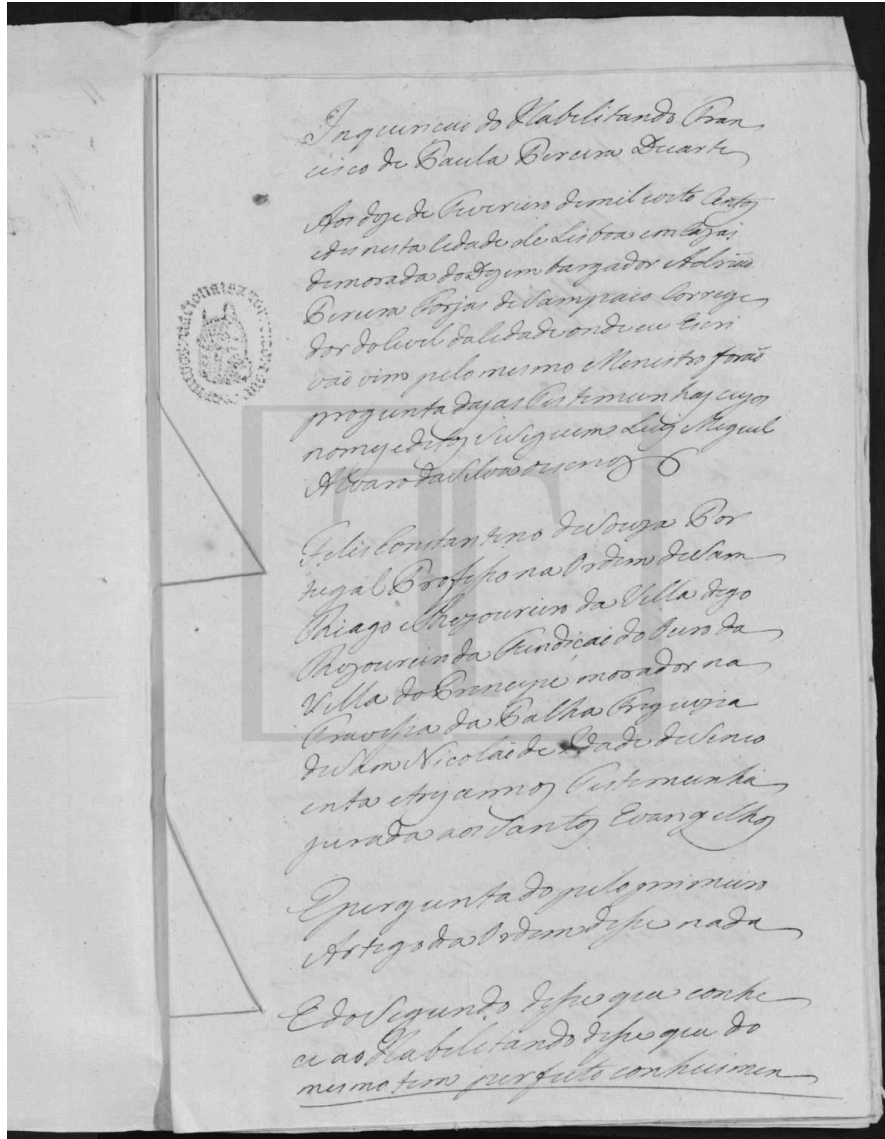 Inquiricaõ do Habilitando Fran
cisco de Paula Pereira Duarte
Aos doze de Fevereiro de mil e oito centos
e des nesta Cidade de Lisboa em Cazas
de morada do Dezembargador Adriaõ
Pereira Forjas de Sampaio Correge
dor do Civel da Cidade onde eu Escri
vaõ vim pelo mesmo Menistro foraõ
proguntadas as Testemunhas cujos
nomes e ditos se seguem Luis Miguel
Alvaro da Silva o escrevy
Felis Constantino de Souza Por
tugal Professo na Ordem de Sam
Thiago e Thezoureiro da Villa digo
Thezoureiro da Fundicaõ do Ouro da
Villa do Principe morador na
Travessa da Palha Freguezia
de Sam Nicoláo de Edade de Sinco
enta e tres annos Testemunha
jurada aos Santos Evangelhos
E perguntado pelo primeiro
Artigo da Ordem disse nada
E do Segundo disse que conhe
ce ao Habilitando disse que do
mesmo tem perfeito conhecimen